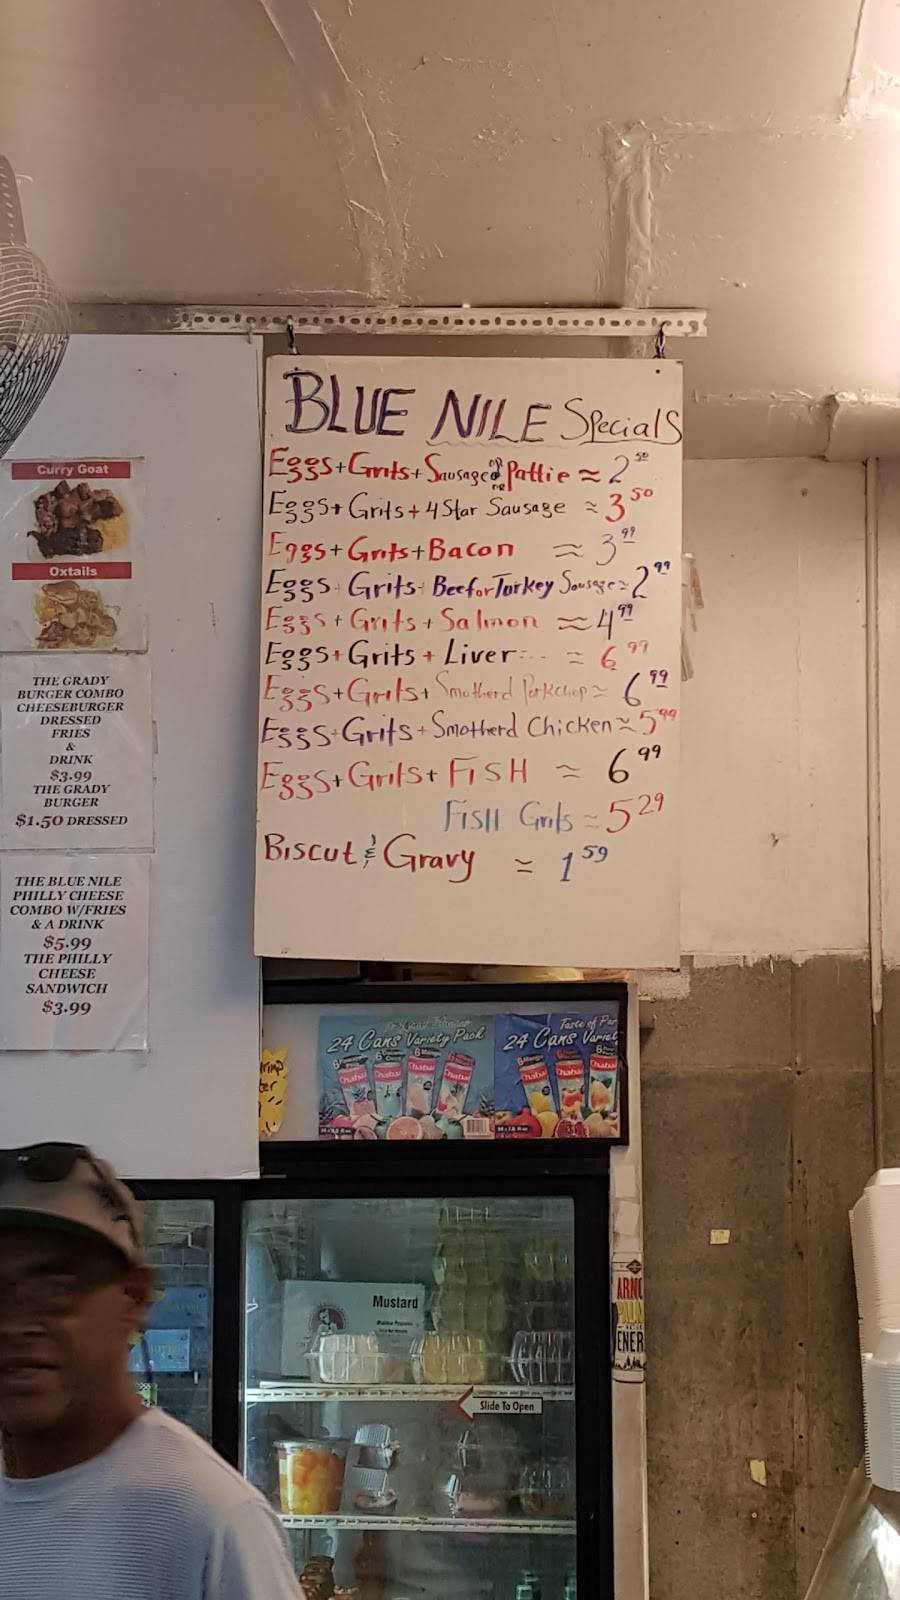 BLUE NILE Specials
Eggs+Grits+Sausage or Pattie ≈ 2 50
Eggs+Grits+4 Star Sausage ≈ 3 50
Eggs+Grits+Bacon ≈ 3 99
Eggs+Grits+Beef or Turkey Sausage ≈ 2 99
Eggs+Grits+Salmon ≈ 4 99
Eggs+Grits+Liver ≈ 6 99
Eggs+Grits+Smotherd Porkchop ≈ 6 99
Eggs+Grits+Smotherd Chicken ≈ 5 99
Eggs+Grits+FISH ≈ 6 99
FISH Grits ≈ 5 29
Biscut & Gravy ≈ 1 59
Curry Goat
Oxtails
THE GRADY
BURGER COMBO
CHEESEBURGER
DRESSED
FRIES
&
DRINK
$3.99
THE GRADY
BURGER
$1.50 DRESSED
THE BLUE NILE
PHILLY CHEESE
COMBO W/FRIES
& A DRINK
$5.99
THE PHILLY
CHEESE
SANDWICH
$3.99
24 Cans Variety Pack
Taste of Par
24 Cans Variet
Chaba
Chaba
Chaba
Chaba
Chaba
Chaba
Chaba
Mustard
Slide To Open
ARNO
PALM
ENER